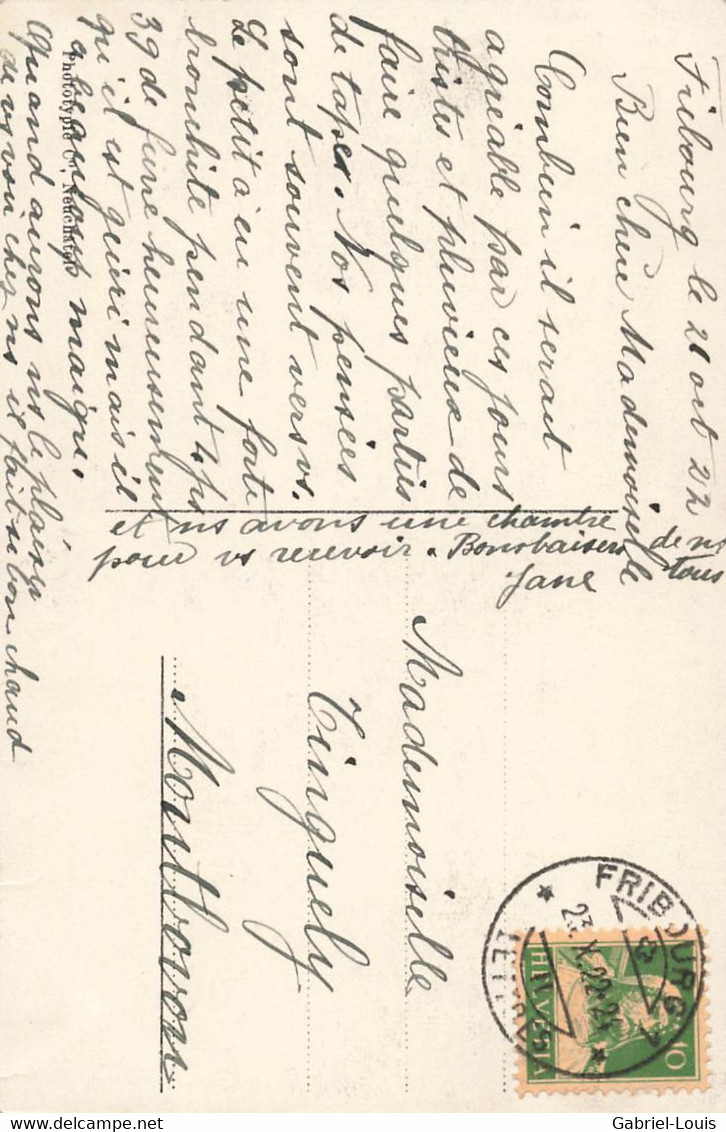 Fribourg le 21 oct 22
Bien chère Mademoiselle
Combien il serait
agréable par ces jours
tristes et pluvieux de
faire quelques parties
de tapes. Nos pensées
sont souvent vers vs.
Le petit a eu une forte
bronchite pendant 4 jrs
39 de fièvre heureusement
qu'il est guéri mais il
a beaucoup maigri.
Quand aurons ns le plaisir
de vs voir chez ns il fait si bon chaud
et ns avons une chambre
pour vs recevoir. Bons baisers de ns
tous
Jane
Phototypie Co, Neuchâtel
Mademoiselle
Tinguely
Montbovon
FRIBOURG
LETTRES
HELVETIA
10
Gabriel-Louis